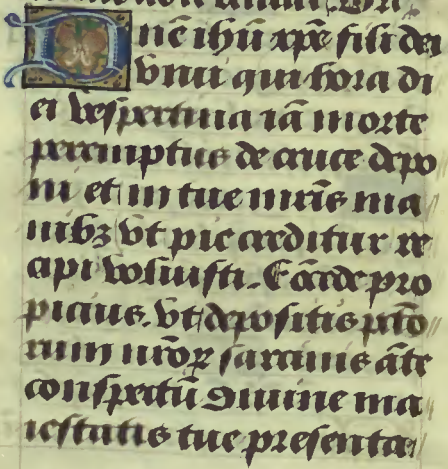 Dne ihu xpe fili dei
viui qui hora di
ei vespertina ia morte
peremptus de cruce depo
ni et in tue mris ma
nibz vt pie creditur re
cipi voluisti. Concede pro
picius. vt depositis pcto
rum nror sarcinis ate
conspectu diuine ma
iestatis tue presenta